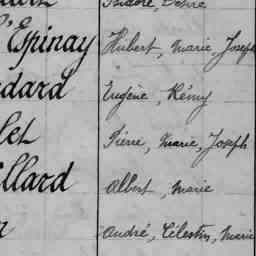 Isidore, Désiré
Epinay Hubert, Marie, Joseph
dard Eugène, Rémy
let Pierre, Marie, Joseph
llard Albert, Marie
André, Célestin, Marie